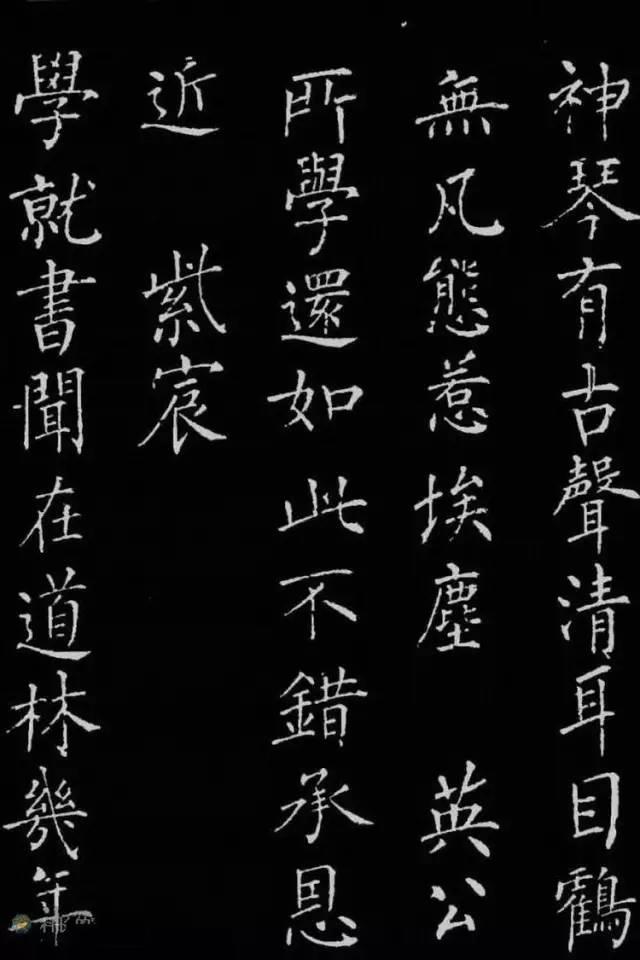 神琴有古聲清耳目鶴
無凡態惹埃塵 英公
所學還如此不錯承恩
近 紫宸
學就書聞在道林幾年